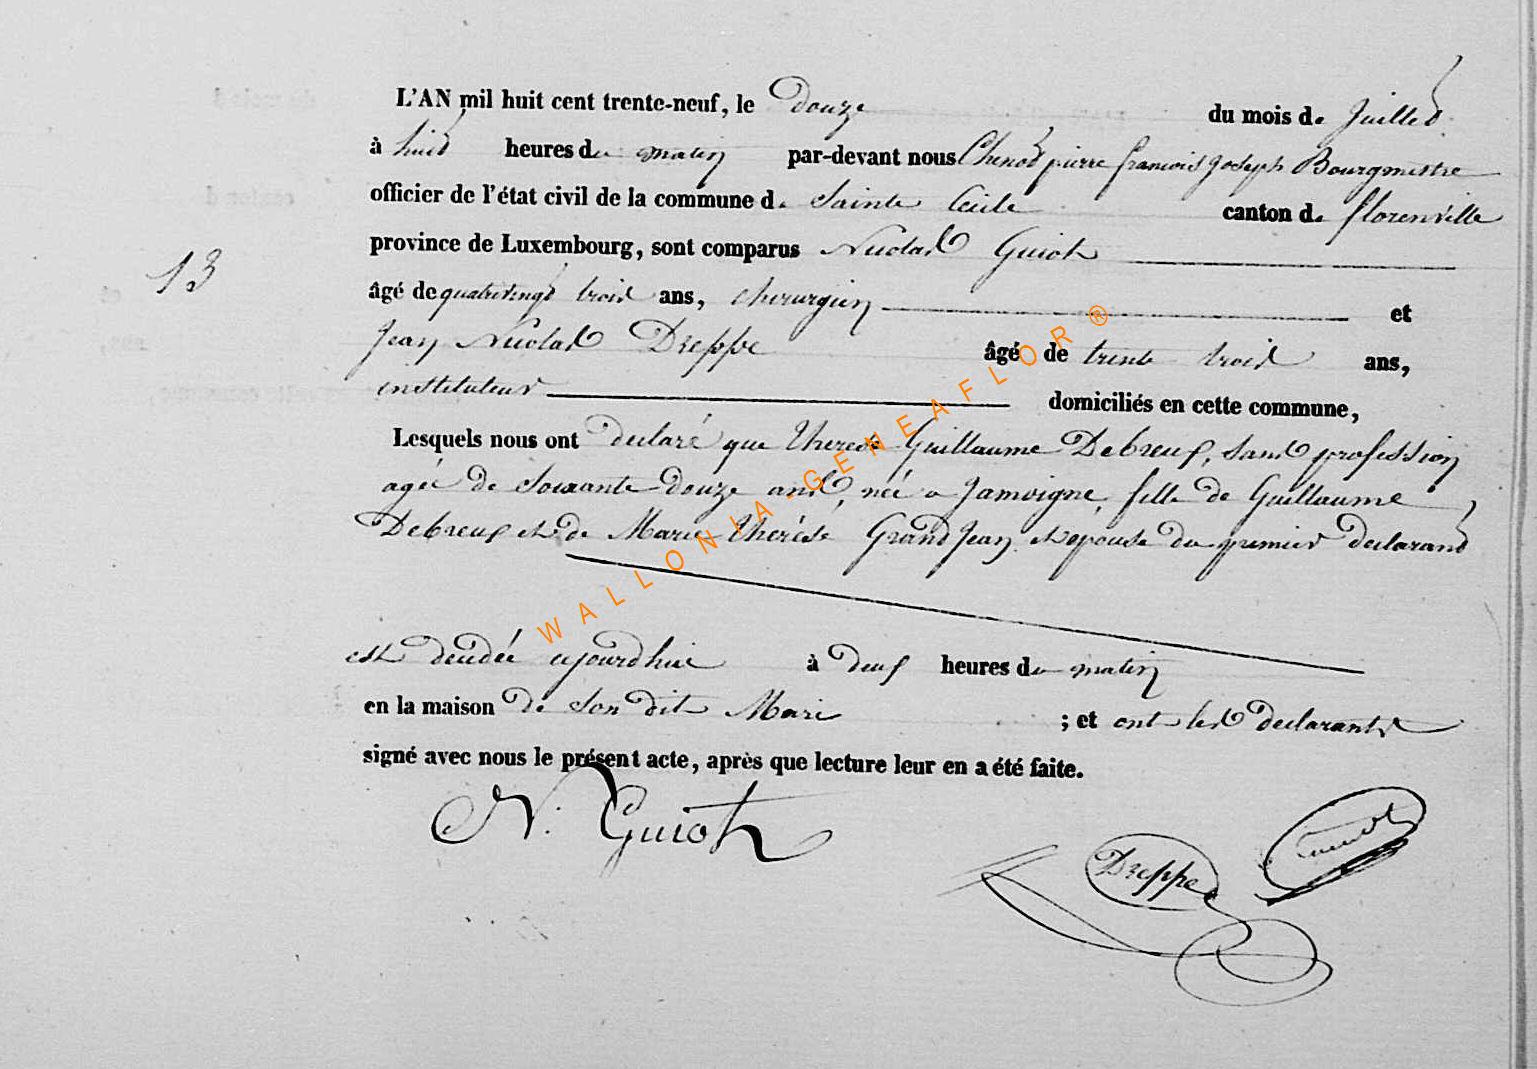 L'AN mil huit cent trente-neuf, le Douze du mois de Juillet
à huit heures du matin par-devant nous Chenot pierre francois Joseph Bourgmestre
officier de l'état civil de la commune de Sainte Cecile canton de florenville
province de Luxembourg, sont comparus Nicolas Guiot
13
âgé de quatrevingt trois ans, chirurgien et
Jean Nicolas Dreppe âgé de trente trois ans,
instituteur domiciliés en cette commune,
Lesquels nous ont declaré que Therese Guillaume Debreux, sans profession
agée de soixante douze ans, née a Jamoigne, fille de Guillaume
Debreux et de Marie Thérése Grand Jean et epouse du premier declarant
est decedée ajourdhui à deux heures du matin
en la maison de son dit Mari ; et ont les declarants
signé avec nous le présent acte, après que lecture leur en a été faite.
N. Guiot
Dreppe
WALLONIA-GENEAFLOR ®